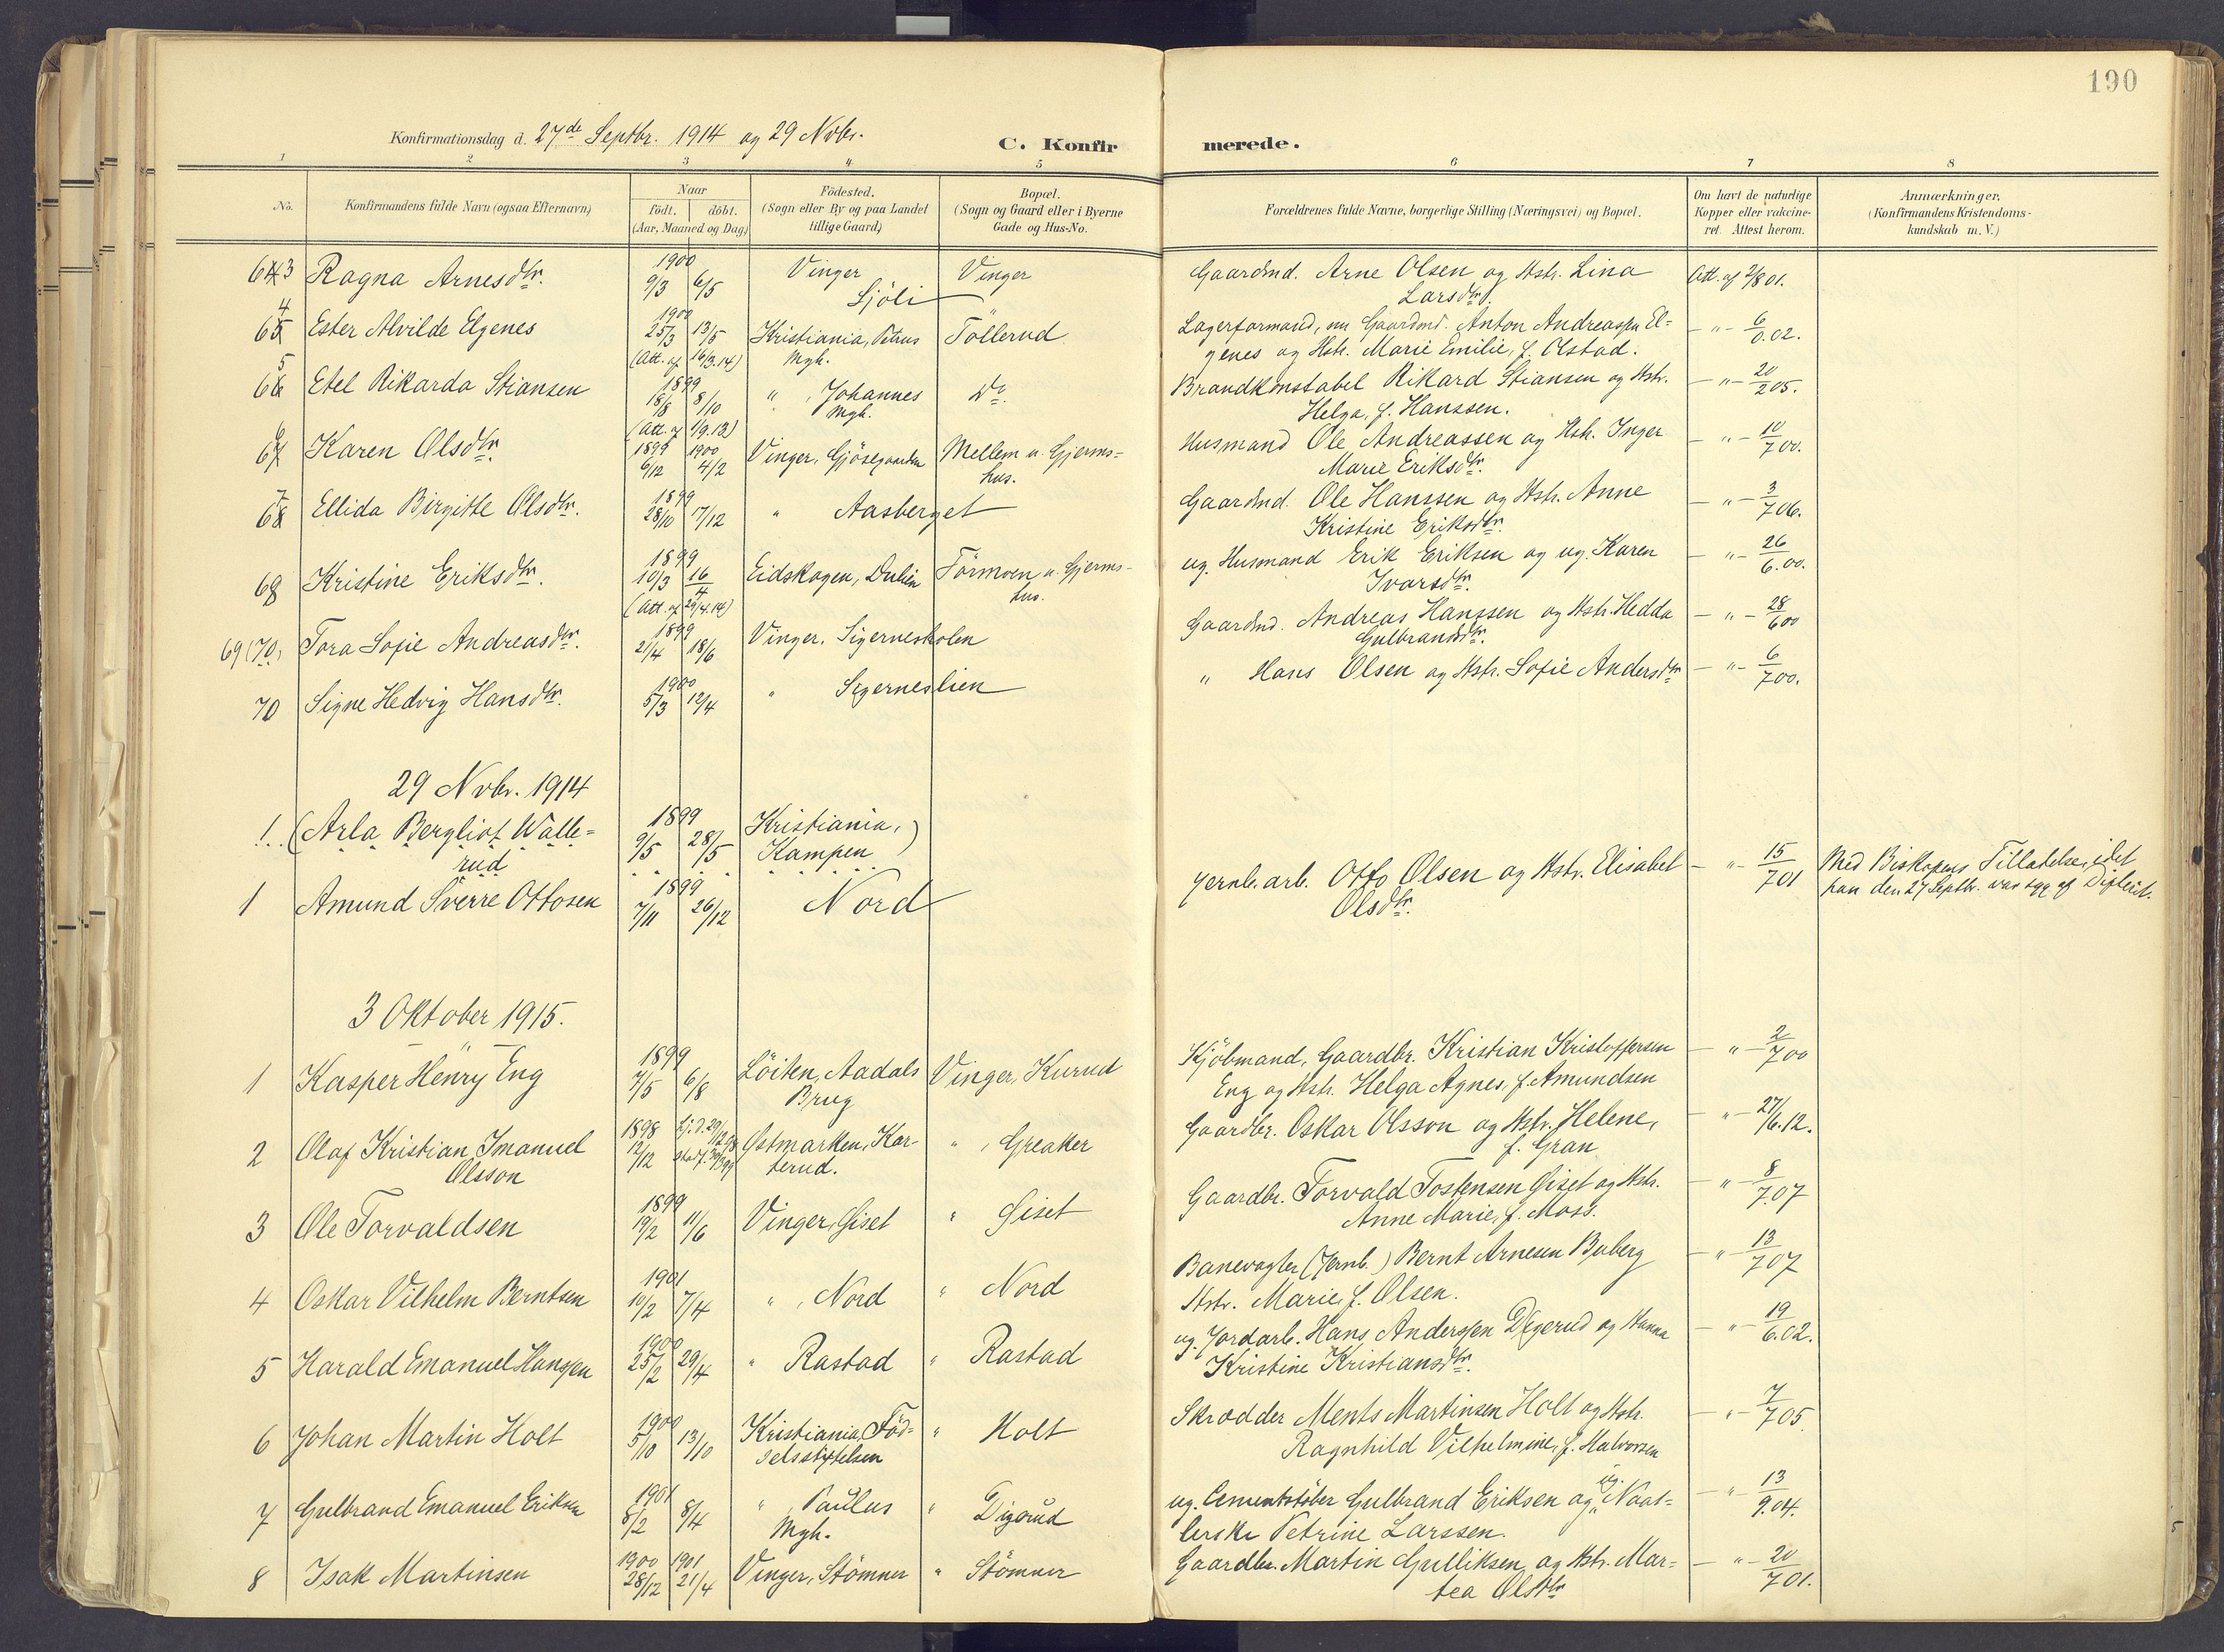 190
Konfirmationsdag d. 27de Septbr. 1914 og 29 Novbr.
C. Konfirmerede.
1 2 3 4 5 6 7 8
No.
Konfirmandens fulde Navn (ogsaa Efternavn)
Naar
födt. döbt.
(Aar, Maaned og Dag)
Födested.
(Sogn eller By og paa Landet
tillige Gaard)
Bopæl.
(Sogn og Gaard eller i Byerne
Gade og Hus-No.
Forældrenes fulde Navne, borgerlige Stilling (Næringsvei) og Bopæl.
Om havt de naturlige
Kopper eller vakcine-
ret. Attest herom.
Anmærkninger.
(Konfirmandens Kristendoms-
kundskab m. V.)
63 Ragna Arnesdtr. 1900 9/3 6/5 Vinger Vinger Gaardmd. Arne Olsen og Hstr. Lina Att. af 2/8 01.
Sjöli " Larsdtr.
64 Ester Alvilde Elgenes 1900 25/3 13/5 Kristiania, Petrus Töllerud Lagerformand, nu Gaardmd. Anton Andreassen El- — " — 6/9.02.
(Att. af 16/3.14) Mgh. genes og Hstr. Marie Emilie, f. Olstad.
65 Etel Rikarda Stiansen 1899 18/8 8/10 " , Johannes Do. Brandkonstabel Rikard Stiansen og Hstr. — " — 20/2 05.
(Att. af 1/9.13) Mgh. Helga, f. Hanssen.
66 Karen Olsdtr. 1899 6/12 1900 4/2 Vinger, Gjösegaarden Mellem u. Gjerms- Husmand Ole Andreassen og Hstr. Inger — " — 10/7 00.
hus. Marie Eriksdtr.
67 Ellida Birgitte Olsdtr. 1899 28/10 17/12 " Aasberget Gaardmd. Ole Hanssen og Hstr. Anne — " — 3/7 06.
Kristine Eriksdtr.
68 Kristine Eriksdtr. 1899 10/3 16/4 Eidskogen, Dulien Förmoen u. Gjerms- ug. Husmand Erik Eriksen og ug. Karen — " — 26/6.00.
(Att. af 29/4.14) hus. Ivarsdtr.
69 (70) Tora Sofie Andreasdtr. 1899 21/4 18/6 Vinger, Sigernesholen Gaardmd. Andreas Hanssen og Hstr. Hedda — " — 28/6 00
Gulbrandsdtr.
70 Signe Hedvig Hansdtr. 1900 5/3 12/4 " Sigerneslien " Hans Olsen og Hstr. Sofie Andersdtr — " — 6/7 00.
29 Novbr. 1914
1. (Arla Bergliot Walle- 1899 9/5 28/5 Kristiania,
rud Kampen )
1 Amund Sverre Ottosen 1899 7/11 26/12 Nord Jernb. arb. Otto Olsen og Hstr. Elisabet — " — 15/7 01 Med Biskopens Tilladelse, idet
Olsdtr. han den 27 Septbr. var syg af Difterit.
3 Oktober 1915.
1 Kasper Henry Eng 1899 7/5 6/8 Löiten, Aadals Vinger, Kurud Kjöbmand, Gaardbr. Kristian Kristoffersen — " — 2/7 00
Brug Eng og Hstr. Helga Agnes, f. Amundsen
2 Olaf Kristian Imanuel 1898 12/12 hj.d. 29/12 98 stadf. Östmarken, Kar- " , Greaker Gaardbr. Oskar Olsson og Hstr. Helene, — " — 27/6.12.
Olsson terud. f. Gran
3 Ole Torvaldsen 1899 19/2 11/6 Vinger, Giset " Giset Gaardbr. Torvald Tostensen Giset og Hstr. — " — 8/7.07
Anne Marie, f. Moss.
4 Oskar Vilhelm Berntsen 1901 10/2 7/4 " , Nord " Nord Banevogter (Jernb.) Bernt Arnesen Buberg — " — 13/7 07
Hstr. Marie, f. Olsen.
5 Harald Emanuel Hanssen 1900 25/2 29/4 " Rastad " Rastad ug. Jordarb. Hans Anderssen Digerud og Hanna — " — 19/6.02.
Kristine Kristiansdtr.
6 Johan Martin Holt 1900 5/10 13/10 Kristiania, Föd- " Holt Skrædder Ments Martinsen Holt og Hstr. — " — 7/7 05.
selsstiftelsen Ragnhild Vilhelmine, f. Halvorsen
7 Gulbrand Emanuel Eriksen 1901 8/2 8/4 " , Paulus " Digerud ug. Cementstöber Gulbrand Eriksen og ug. — " — 13/9.04.
Mgh. Petrine Larssen.
8 Isak Martinsen 1900 28/12 1901 21/4 Vinger, Stömner " Stömner Gaardbr. Martin Gulliksen og Hstr. Mar- — " — 20/7 01.
tea Olsdtr